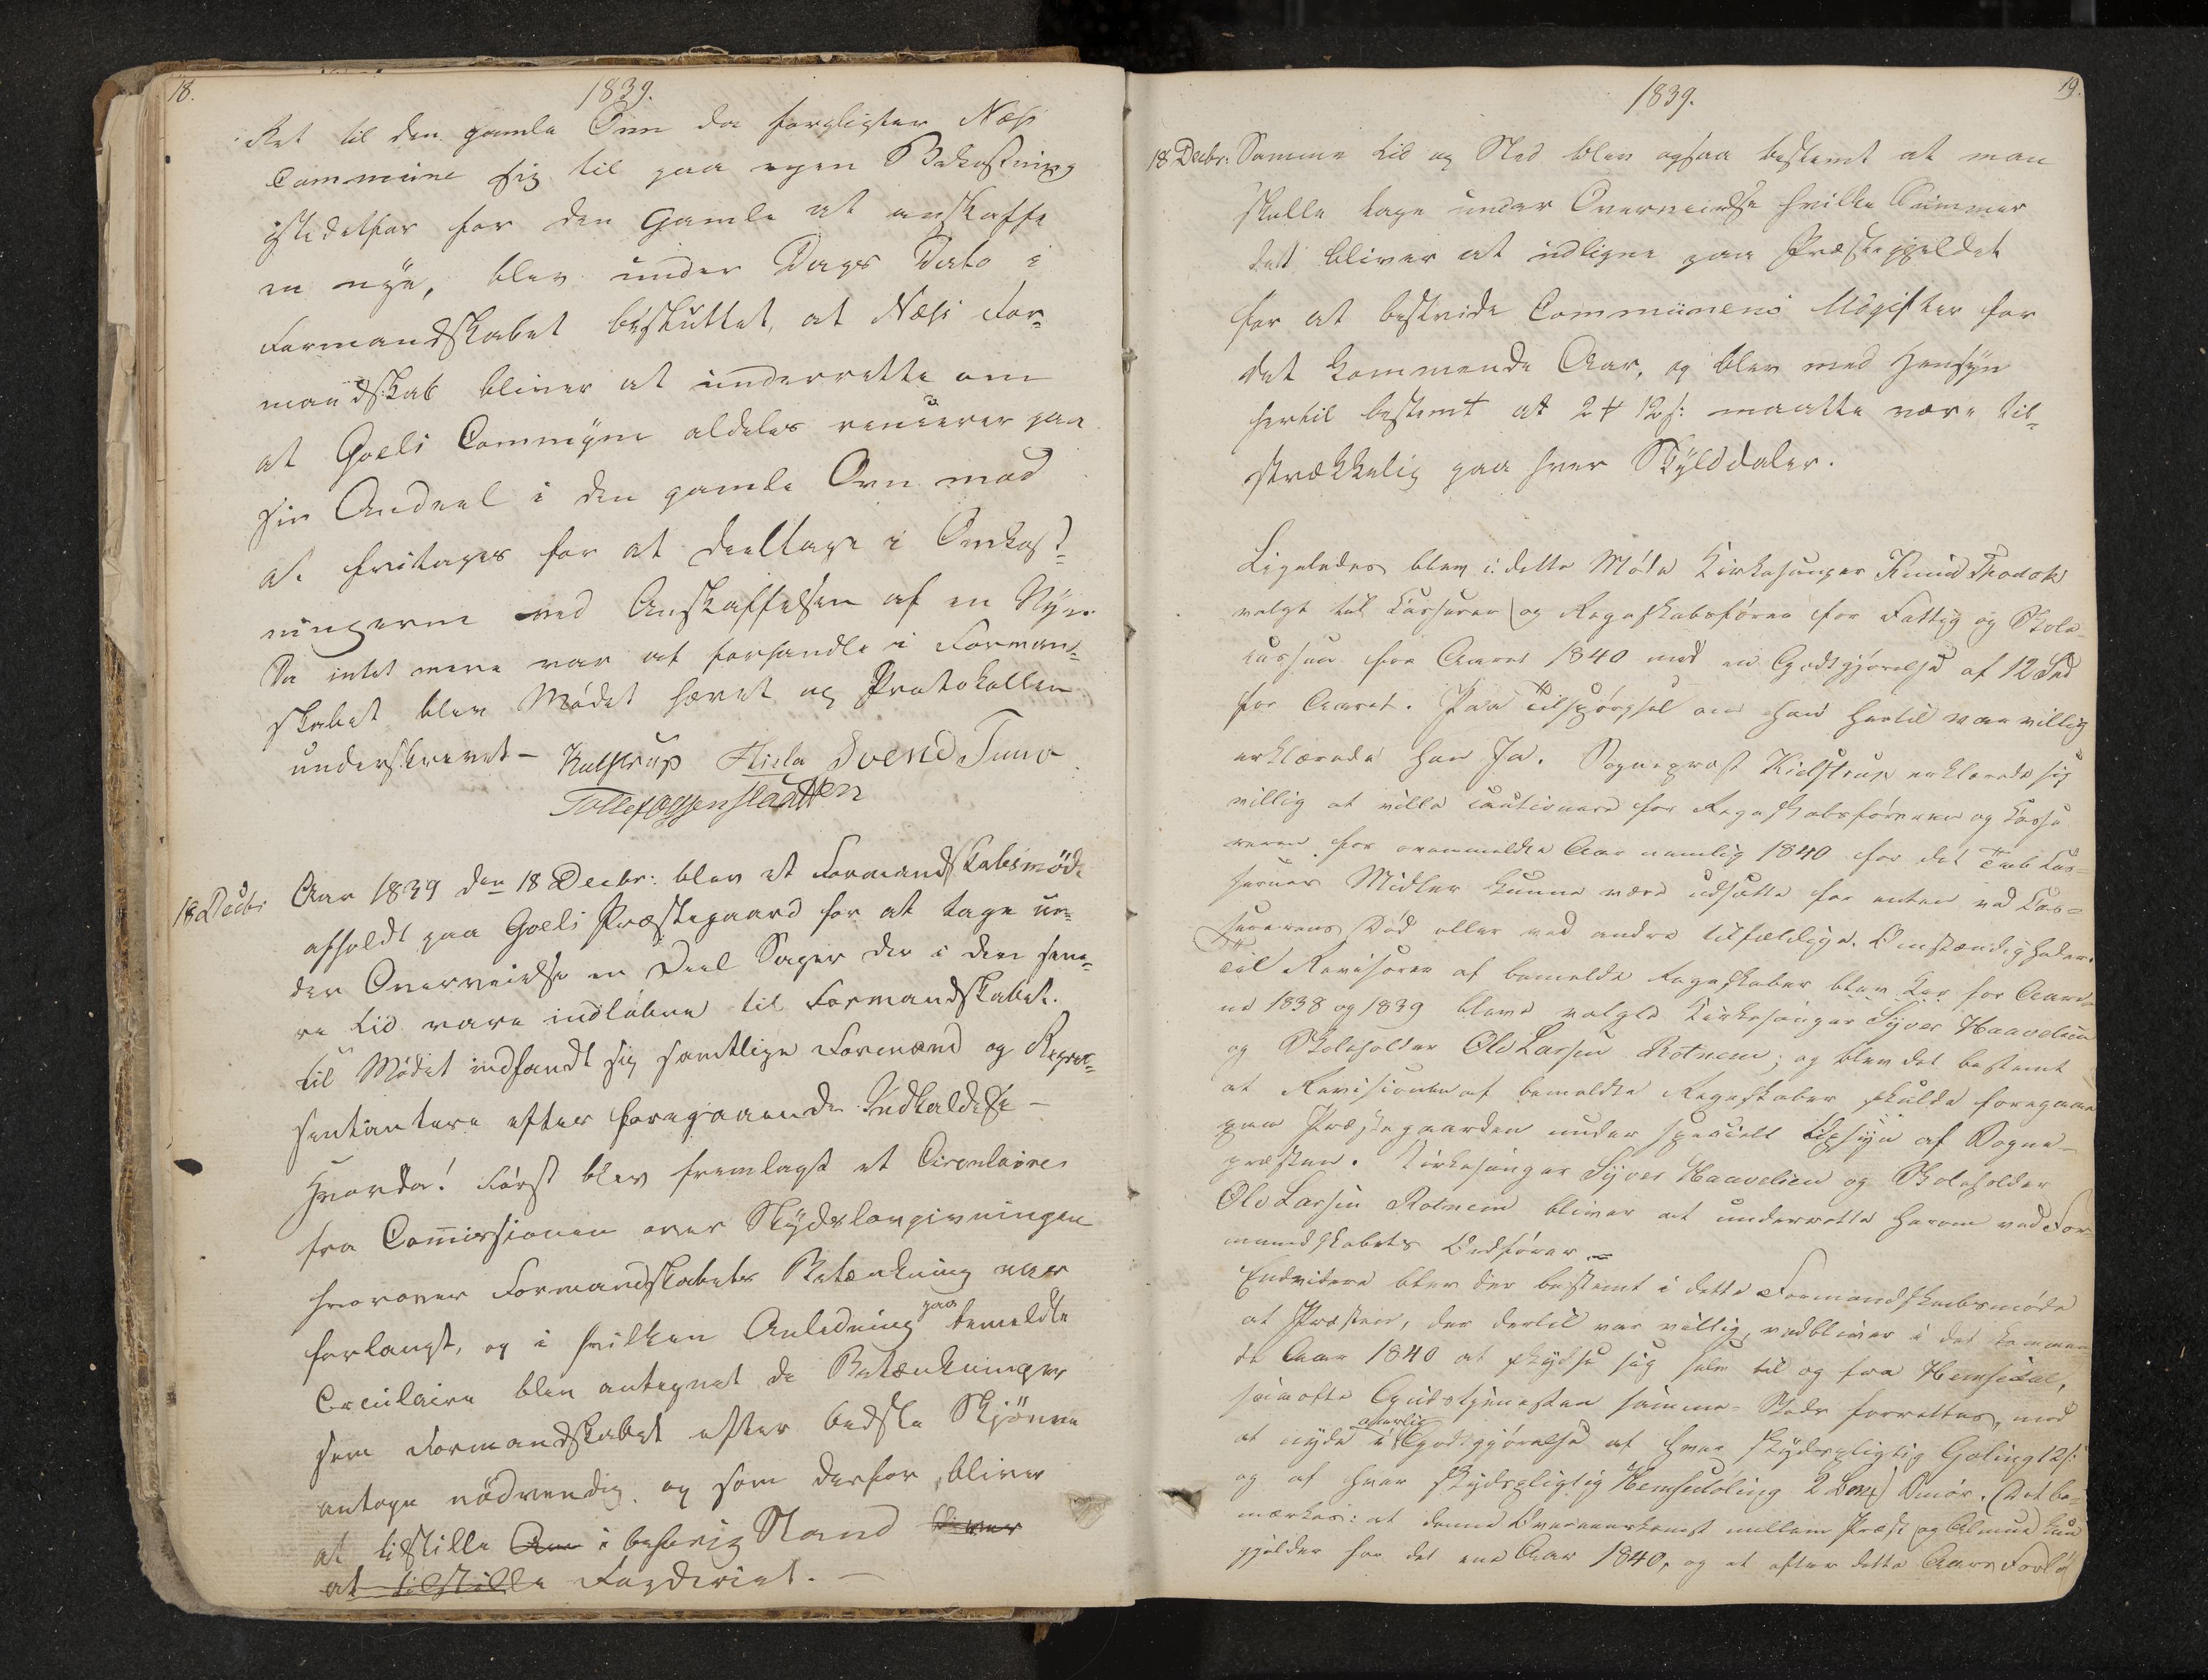 18.
1839.
Ret til den gamle Ovn da forpligter Næss
Commune sig til paa egen Bekostning
istedetfor for den Gamle at anskaffe
en nye, blev under Dags Dato i
Formandskabet besluttet, at Næss For¬
mandskab bliver at underrette om
at Goels Commyne aldeles renserer paa
sin Andeel i den gamle Ovn mod
at fritages for at deeltage i Omkost¬
ningerne ved Anskaffelsen af en Nye.
Da intet mere var at forhandle i Formand¬
skabet blev Mødet hævet og Protokollen
underskrevet – Kielstrup Svend Tuno
18 Decbr
Aar 1839 den 18 Decbr: blev et Formandskabsmøde
afholdt paa Goels Præstegaard for at tage un¬
der Overveielse en Deel Sager der i den sene¬
re Tid vare indløbne til Formandskabet.
til Mødet indfandt sig samtlige Formænd og Repræ¬
sentantere efter foregaaende Indkaldelse –
Hvorda! Først blev fremlagt et Circulaire
fra Commissionen over Skydslovgivningen
hvorover Formandskabets Betænkning var
forlangt, og i hvilken Anledning paa bemeldte
Circulaire blev antegnet de Betænkninger
som Formandskabet efter bedste Skjønne
antoge nödvendig og som derfor bliver
at tilstille i behørig Stand bliver
at tilstille Fogderiet. –
19.
1839.
18 Decbr: Samme tid og Sted blev ogsaa bestemt at man
skulle tage under Overveielse hvilke Summer
det bliver at udligne paa Præstegjeldet
for at bestride Communens Udgifter for
det kommende Aar, og blev med Hensyn
hertil bestemt at 2 # 12 s: maatte være til¬
strækkelig paa hver Skylddaler.
Ligeledes blev i dette Møde Kirkesanger Knud
valgt til Casserer og Regnskabsfører for Fattig og Skole¬
cassen for Aaret 1840 med en Godtgjørelse af 12 Spd
for Aaret. Paa Tilspørgsel om han hertil var villig
erklærede han Ja. Sognepræst Kielstrup erklærede sig
villig at ville cautionere for Regnskabsføreren og Casse
reren for ovenmeldte Aar nemlig 1840 for det Tab Cas¬
sernes Midler kunne være udsatte for enten ved Cas¬
sererens Død eller ved andre tilfældige Omstændigheder.
Til Revisorer af bemeldte Regnskaber blev for Aare
ne 1838 og 1839 bleve valgte Kirkesanger Syver Haavelien
og Skoleholder Ole Larsen Rotneim; og blev det bestemt
at Revisionen af bemeldte Regnskaber skulde foregaae
paa Præstegaarden under specielt Opsyn af Sogne¬
præsten. Kirkesanger Syver Haavelien og Skoleholder
Ole Larsen Rotneim bliver at underrette herom ved For¬
mandskabets Ordfører. –
Endvidere blev der bestemt i dette Formandskabsmøde
at Præsten, der dertil var villig, vedbliver i det kommen
de Aar 1840 at skydse sig selv til og fra Hemsedal,
saa ofte Gudstjenesten samme Steds forrettes, mod
at nyde aarlig i Godtgjørelse af hver skydspligtig Goling 12 s:
og af hver skydspligtig Hemsedøling 2 Smør. Det be¬
mærkes: at denne Overeenskomst mellem Præst og Almue kun
gjelder for det ene Aar 1840, og at efter dette Aars Forløb